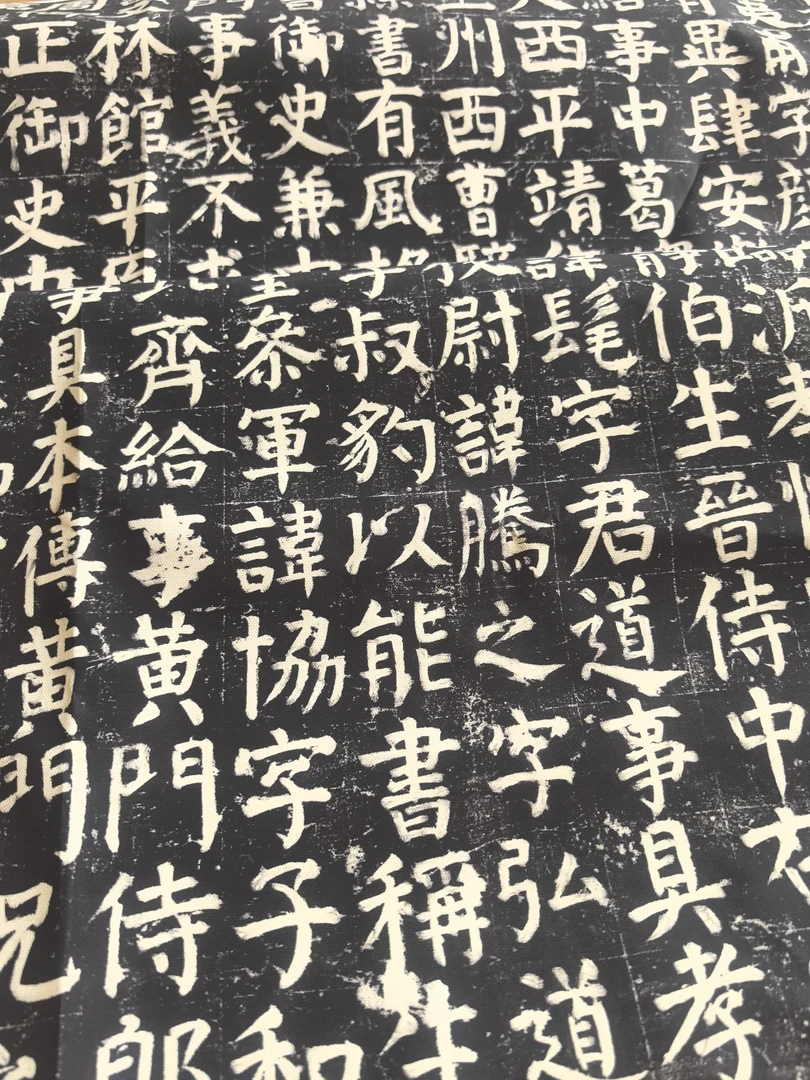 字顏
異肆安
事中葛
西平靖諱
州西曹
書有風
御史兼
事義不
林館平
正御史
伯生晉侍中
髦字君道事具孝
尉諱騰之字弘道
叔豹以能書稱生
參軍諱協字子和
齊給事黃門侍郎
具本傳黃門兄